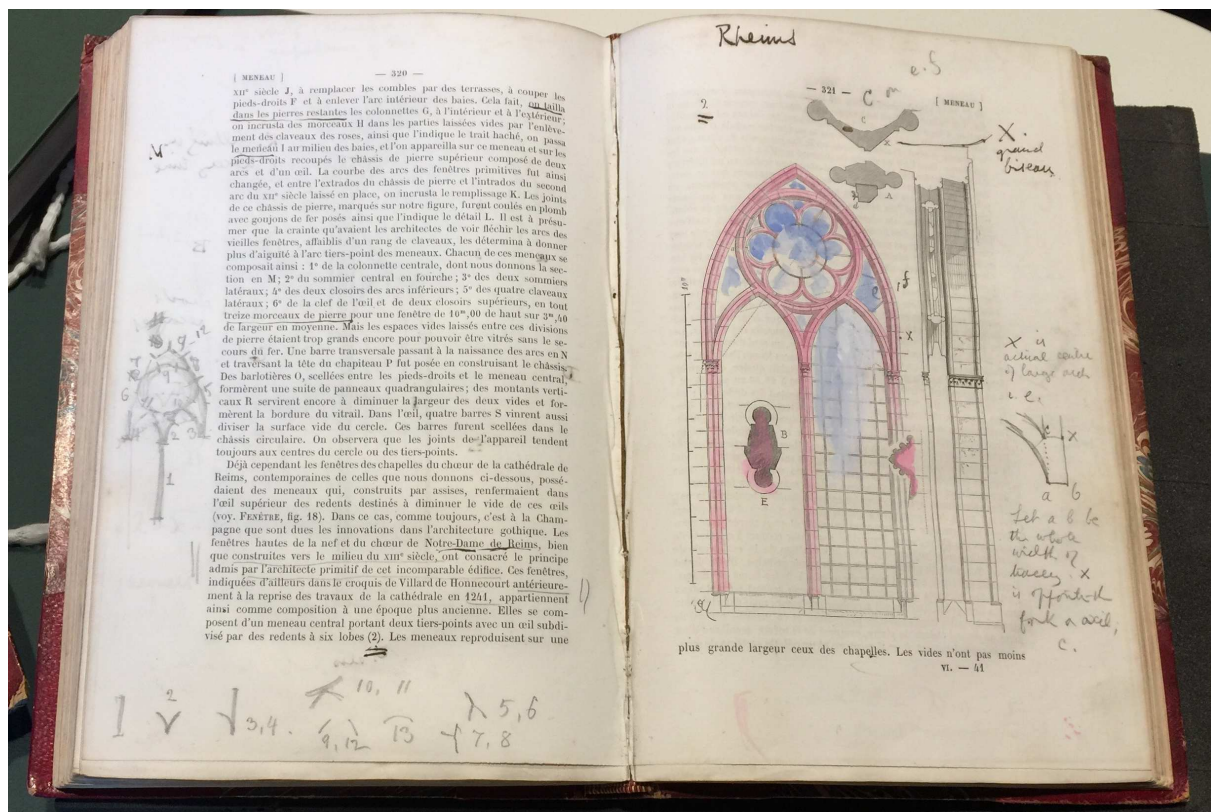 [ MENEAU ]
— 320 —
XIIᵉ siècle J, à remplacer les combles par des terrasses, à couper les
pieds-droits F et à enlever l'arc intérieur des baies. Cela fait, on tailla
dans les pierres restantes les colonnettes G, à l'intérieur et à l'extérieur;
on incrusta des morceaux H dans les parties laissées vides par l'enlève-
ment des claveaux des roses, ainsi que l'indique le trait haché, on passa
le meneau I au milieu des baies, et l'on appareilla sur ce meneau et sur les
pieds-droits recoupés le châssis de pierre supérieur composé de deux
arcs et d'un œil. La courbe des arcs des fenêtres primitives fut ainsi
changée, et entre l'extrados du châssis de pierre et l'intrados du second
arc du XIIᵉ siècle laissé en place, on incrusta le remplissage K. Les joints
de ce châssis de pierre, marqués sur notre figure, furent coulés en plomb
avec goujons de fer posés ainsi que l'indique le détail L. Il est à présu-
mer que la crainte qu'avaient les architectes de voir fléchir les arcs des
vieilles fenêtres, affaiblis d'un rang de claveaux, les détermina à donner
plus d'aiguïté à l'arc tiers-point des meneaux. Chacun de ces meneaux se
composait ainsi : 1° de la colonnette centrale, dont nous donnons la sec-
tion en M; 2° du sommier central en fourche; 3° des deux sommiers
latéraux; 4° des deux closoirs des arcs inférieurs; 5° des quatre claveaux
latéraux; 6° de la clef de l'œil et de deux closoirs supérieurs, en tout
treize morceaux de pierre pour une fenêtre de 10ᵐ,00 de haut sur 3ᵐ,40
de largeur en moyenne. Mais les espaces vides laissés entre ces divisions
de pierre étaient trop grands encore pour pouvoir être vitrés sans le se-
cours du fer. Une barre transversale passant à la naissance des arcs en N
et traversant la tête du chapiteau P fut posée en construisant le châssis.
Des barlotières O, scellées entre les pieds-droits et le meneau central,
formèrent une suite de panneaux quadrangulaires; des montants verti-
caux R servirent encore à diminuer la largeur des deux vides et for-
mèrent la bordure du vitrail. Dans l'œil, quatre barres S vinrent aussi
diviser la surface vide du cercle. Ces barres furent scellées dans le
châssis circulaire. On observera que les joints de l'appareil tendent
toujours aux centres du cercle ou des tiers-points.
Déjà cependant les fenêtres des chapelles du chœur de la cathédrale de
Reims, contemporaines de celles que nous donnons ci-dessous, possé-
daient des meneaux qui, construits par assises, renfermaient dans
l'œil supérieur des redents destinés à diminuer le vide de ces œils
(voy. FENÊTRE, fig. 18). Dans ce cas, comme toujours, c'est à la Cham-
pagne que sont dues les innovations dans l'architecture gothique. Les
fenêtres hautes de la nef et du chœur de Notre-Dame de Reims, bien
que construites vers le milieu du XIIIᵉ siècle, ont consacré le principe
admis par l'architecte primitif de cet incomparable édifice. Ces fenêtres,
indiquées d'ailleurs dans le croquis de Villard de Honnecourt antérieure-
ment à la reprise des travaux de la cathédrale en 1241, appartiennent
ainsi comme composition à une époque plus ancienne. Elles se com-
posent d'un meneau central portant deux tiers-points avec un œil subdi-
visé par des redents à six lobes (2). Les meneaux reproduisent sur une
2
3,4.
10, 11
9, 12
13
5, 6
7, 8
Rheims
— 321 —
[ MENEAU ]
2
C
X.
grand
biseau
A
B
E
X is
actual centre
of large arch
i.e.
c
X
a b
Let a b be
the whole
width of
tracery. X
is opposite the
fork or axil,
c.
plus grande largeur ceux des chapelles. Les vides n'ont pas moins
VI. — 41